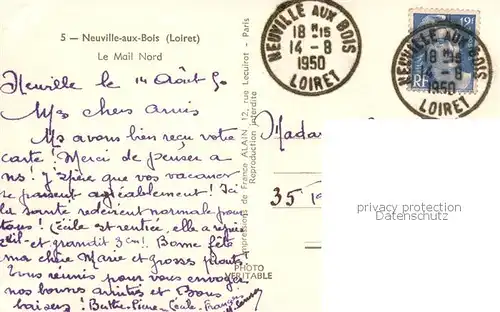 5 - Neuville-aux-Bois (Loiret)
Le Mail Nord
NEUVILLE AUX BOIS
18 H15
14 - 8
1950
LOIRET
12F
RF
NEUVILLE AUX BOIS
18 H15
- 8
1950
LOIRET
Neuville le 14 Août 50
Mes chers amis
Ns avons bien reçu votre
carte! Merci de penser à
ns! J'espère que vos vacances
se passent agréablement! Ici
la santé redevient normale pour
tous! Cécile est rentrée, elle a
et grandit 3 cm! Bonne fête
ma chère Marie et grosses
Tous réunis pour vous envoyer
nos bonnes amitiés et Bons
baisers! Berthe-Pierre-Cécile-François
Impressions de France ALAIN, 12, rue Lecuirot - Paris
Reproduction interdite
PHOTO
VÉRITABLE
Madam
35
privacy protection
Datenschutz